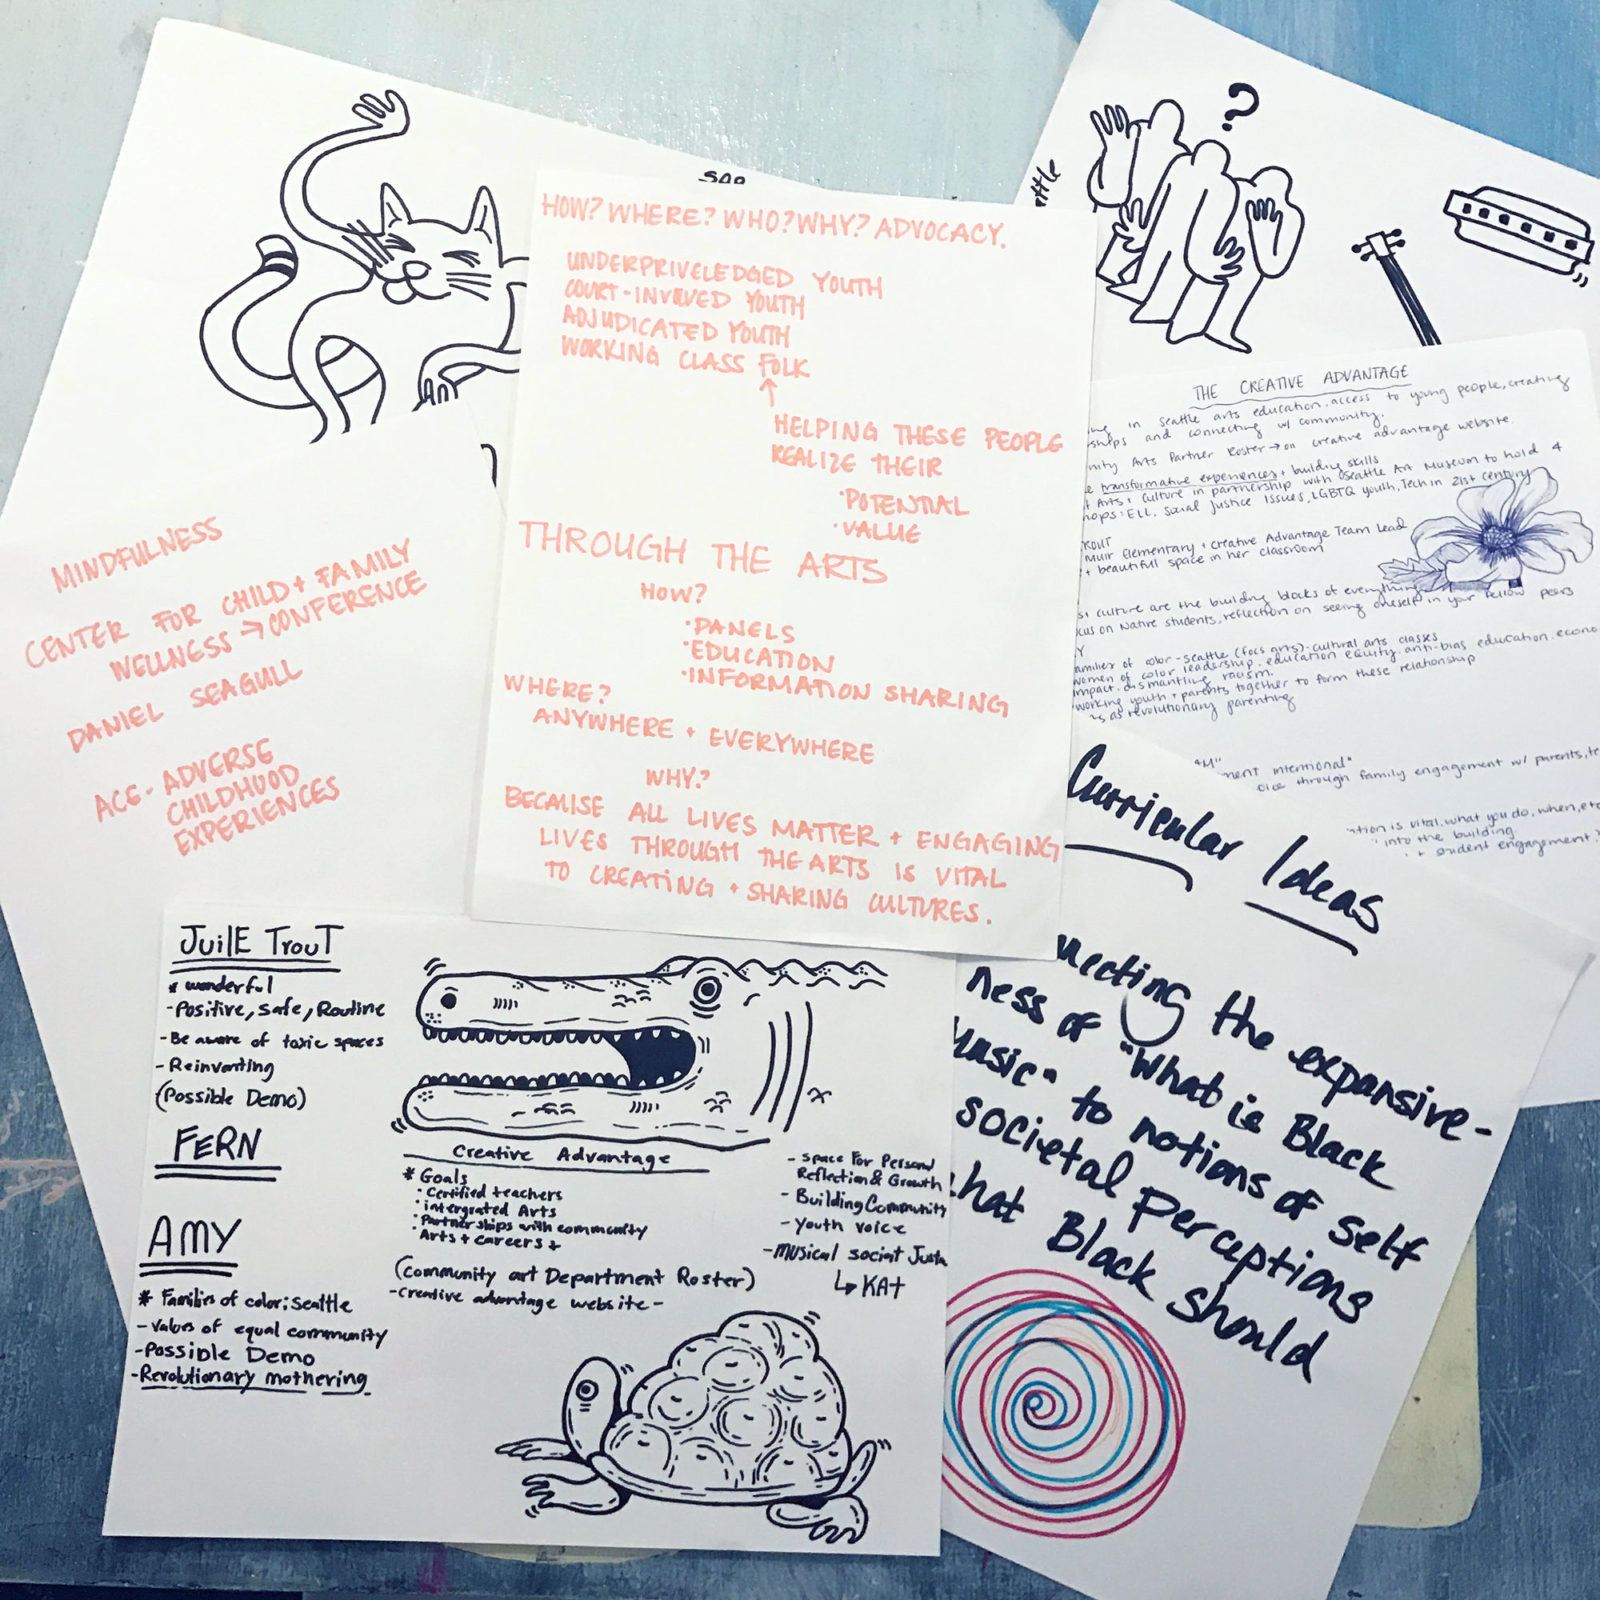 HOW? WHERE? WHO? WHY? ADVOCACY.
UNDERPRIVELEDGED YOUTH
COURT-INVLVED YOUTH
ADJUDICATED YOUTH
WORKING CLASS FOLK
↑
HELPING THESE PEOPLE
REALIZE THEIR
·POTENTIAL
·VALUE
THROUGH THE ARTS
HOW?
·PANELS
·EDUCATION
·INFORMATION SHARING
WHERE?
ANYWHERE + EVERYWHERE
WHY?
BECAUSE ALL LIVES MATTER + ENGAGING
LIVES THROUGH THE ARTS IS VITAL
TO CREATING + SHARING CULTURES.
MINDFULNESS
CENTER FOR CHILD + FAMILY
WELLNESS → CONFERENCE
DANIEL SEAGULL
ACE - ADVERSE
CHILDHOOD
EXPERIENCES
?
THE CREATIVE ADVANTAGE
in Seattle arts education. access to young people, creating
and connecting w/ community.
Arts Partner Roster → on creative advantage website.
transformative experiences + building skills
Arts + Culture in partnership with Seattle Art Museum to hold 4
ELL, Social Justice Issues, LGBTQ youth, Tech in 21st century
Muir Elementary + creative Advantage Team Lead
+ beautiful space in her classroom
culture are the building blocks of everything
on Native students, reflection on seeing oneself in your fellow peers
of color - Seattle (focs arts) - cultural arts classes
women of color leadership. education equity. anti-bias education. econo
impact. dismantling racism.
working youth + parents together to form these relationship
as revolutionary parenting
intentional"
through family engagement w/ parents, te
is vital, what you do, when, etc
into the building
+ student engagement,
Curricular Ideas
necting the expansive-
ness of "What is Black
Music" to notions of self
societal Perceptions
hat Black should
JuilE TrouT
* wonderful
- Positive, Safe, Routine
- Be aware of toxic spaces
- Reinventing
(Possible Demo)
FERN
AMY
* Families of color: Seattle
- Values of equal community
- Possible Demo
- Revolutionary mothering
Creative Advantage
* Goals
· Certified teachers
· intergrated Arts
· Partnerships with community
· Arts + careers +
(Community art Department Roster)
- creative advantage website -
- Space For Personal
Reflection & Growth
- Building Community
- youth voice
- musical social Justi
↳ KAT